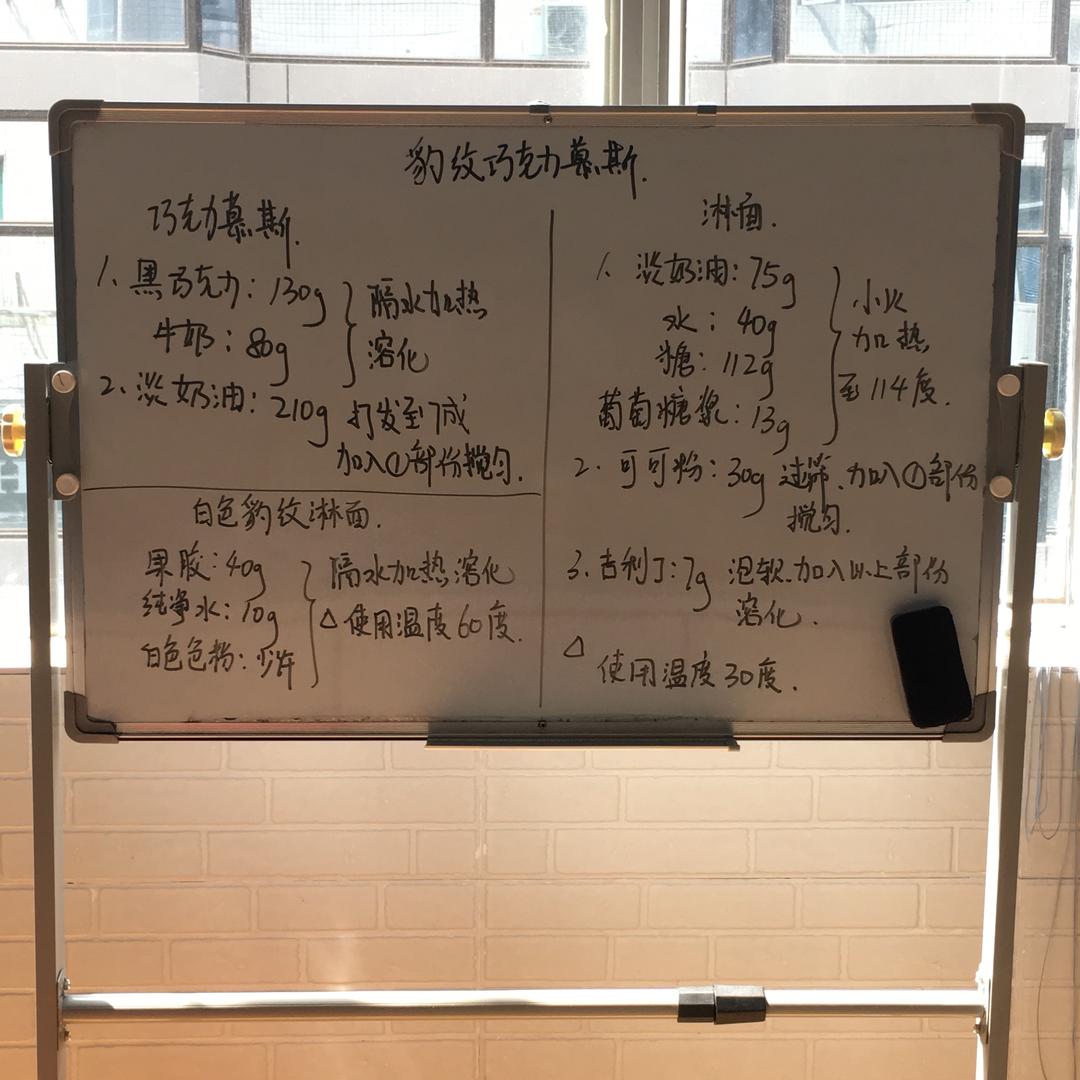 豹纹巧克力慕斯.
巧克力慕斯.
1. 黑巧克力: 130g
牛奶: 80g
隔水加热
溶化
2. 淡奶油: 210g 打发至7成
加入①部份搅匀.
白色豹纹淋面.
果胶: 40g
纯净水: 10g
白色色粉: 少许
隔水加热溶化
△使用温度60度.
淋面.
1. 淡奶油: 75g
水: 40g
糖: 112g
葡萄糖浆: 13g
小火
加热
至114度.
2. 可可粉: 30g 过筛.加入①部份
搅匀.
3. 吉利丁: 7g 泡软.加入以上部份
溶化.
△
使用温度30度.